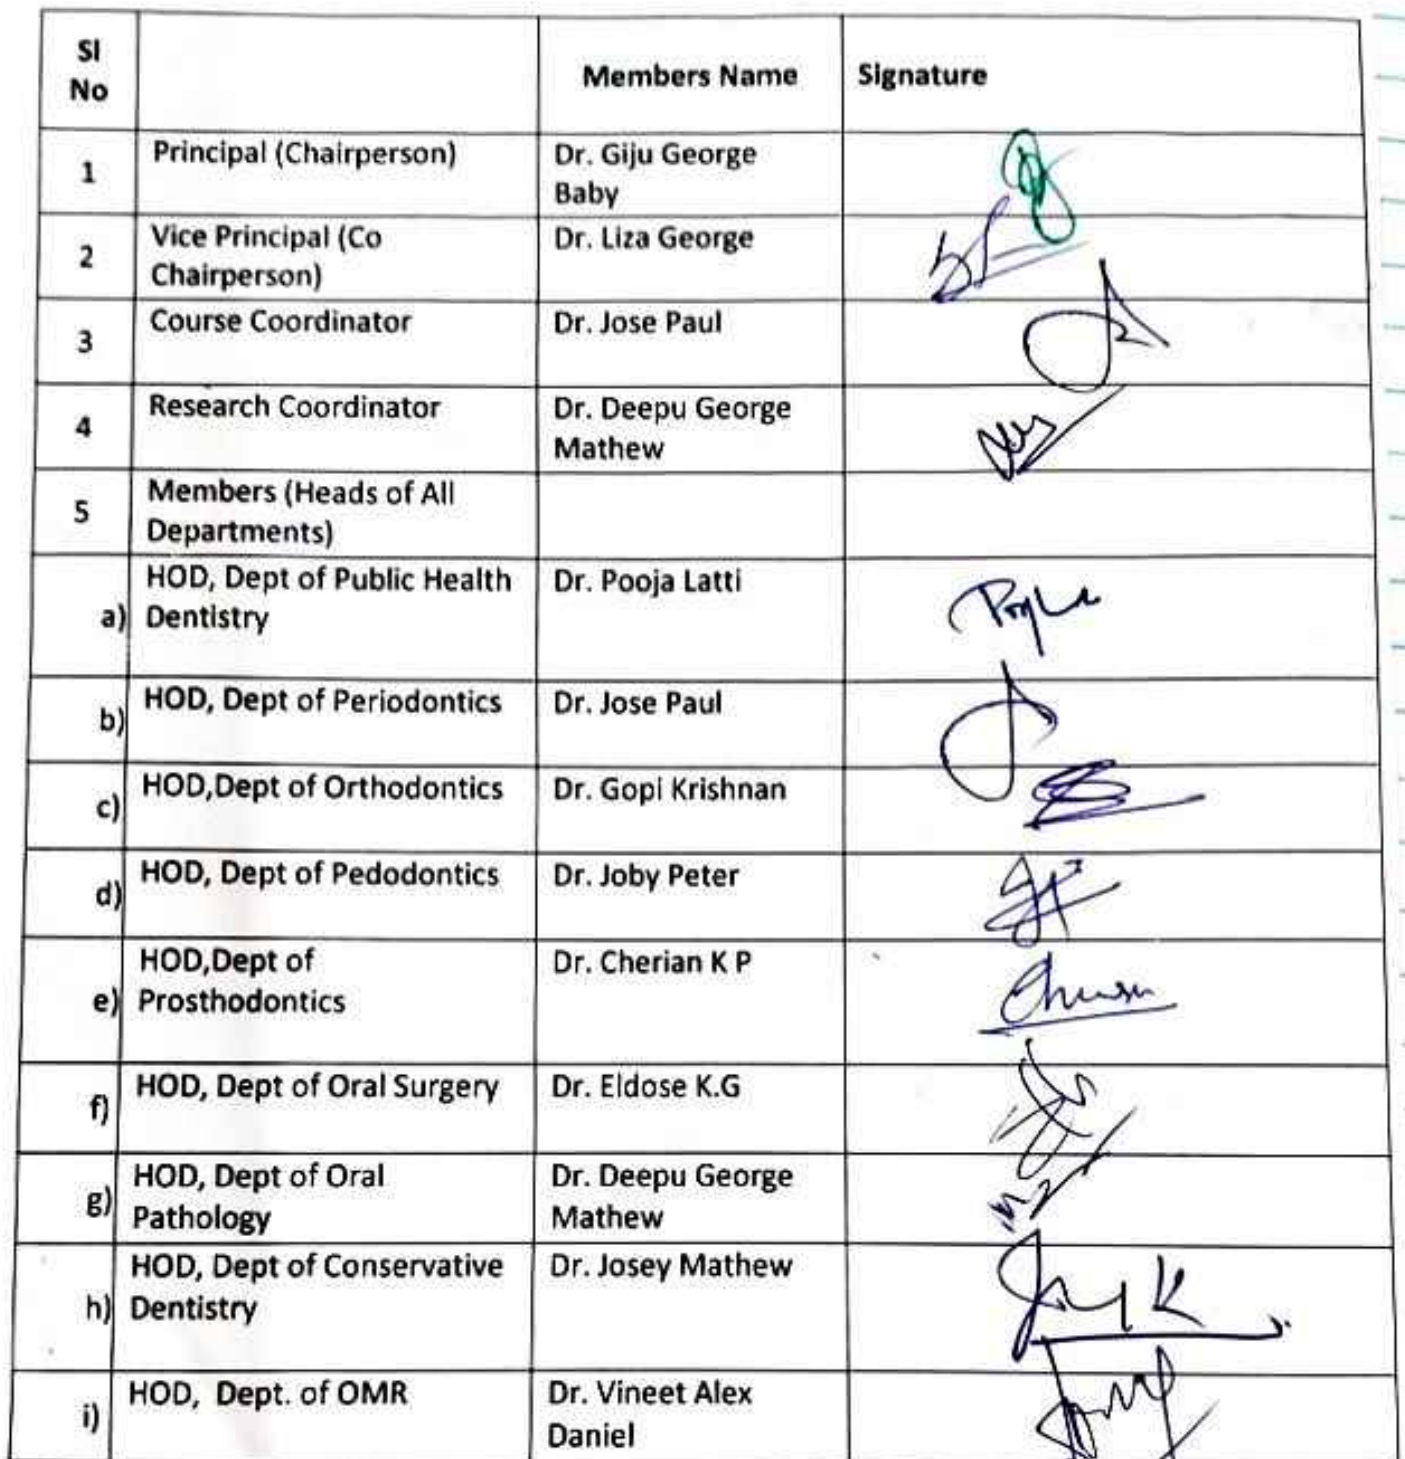 Sl
No
Members Name
Signature
1
Principal (Chairperson)
Dr. Giju George
Baby
2
Vice Principal (Co
Chairperson)
Dr. Liza George
3
Course Coordinator
Dr. Jose Paul
4
Research Coordinator
Dr. Deepu George
Mathew
5
Members (Heads of All
Departments)
a)
HOD, Dept of Public Health
Dentistry
Dr. Pooja Latti
b)
HOD, Dept of Periodontics
Dr. Jose Paul
c)
HOD,Dept of Orthodontics
Dr. Gopi Krishnan
d)
HOD, Dept of Pedodontics
Dr. Joby Peter
e)
HOD,Dept of
Prosthodontics
Dr. Cherian K P
f)
HOD, Dept of Oral Surgery
Dr. Eldose K.G
g)
HOD, Dept of Oral
Pathology
Dr. Deepu George
Mathew
h)
HOD, Dept of Conservative
Dentistry
Dr. Josey Mathew
i)
HOD, Dept. of OMR
Dr. Vineet Alex
Daniel